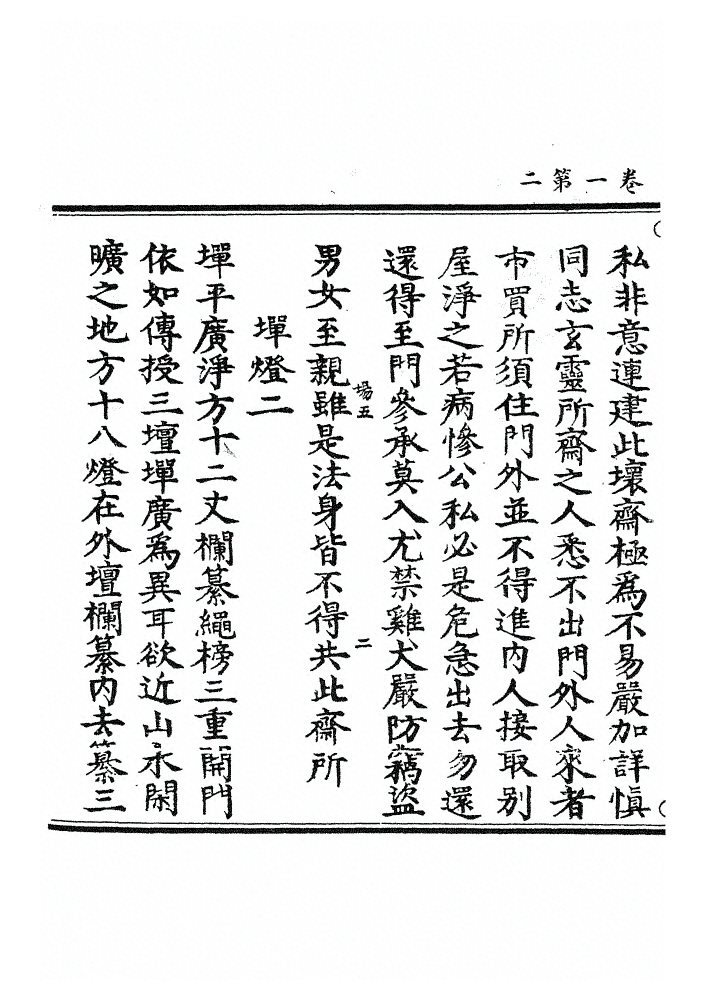 卷一第二
私非意連建此壞齋極為不易嚴加詳慎
同志玄靈所齋之人悉不出門外人來者
市買所須住門外並不得進內人接取別
屋淨之若病慘公私必是危急出去勿還
還得至門參承莫入尤禁雞犬嚴防竊盜
場五 二
男女至親雖是法身皆不得共此齋所
墠燈二
墠平廣淨方十二丈欄纂繩榜三重開門
依如傳授三壇墠廣為異耳欲近山水閑
曠之地方十八燈在外壇欄纂內去纂三